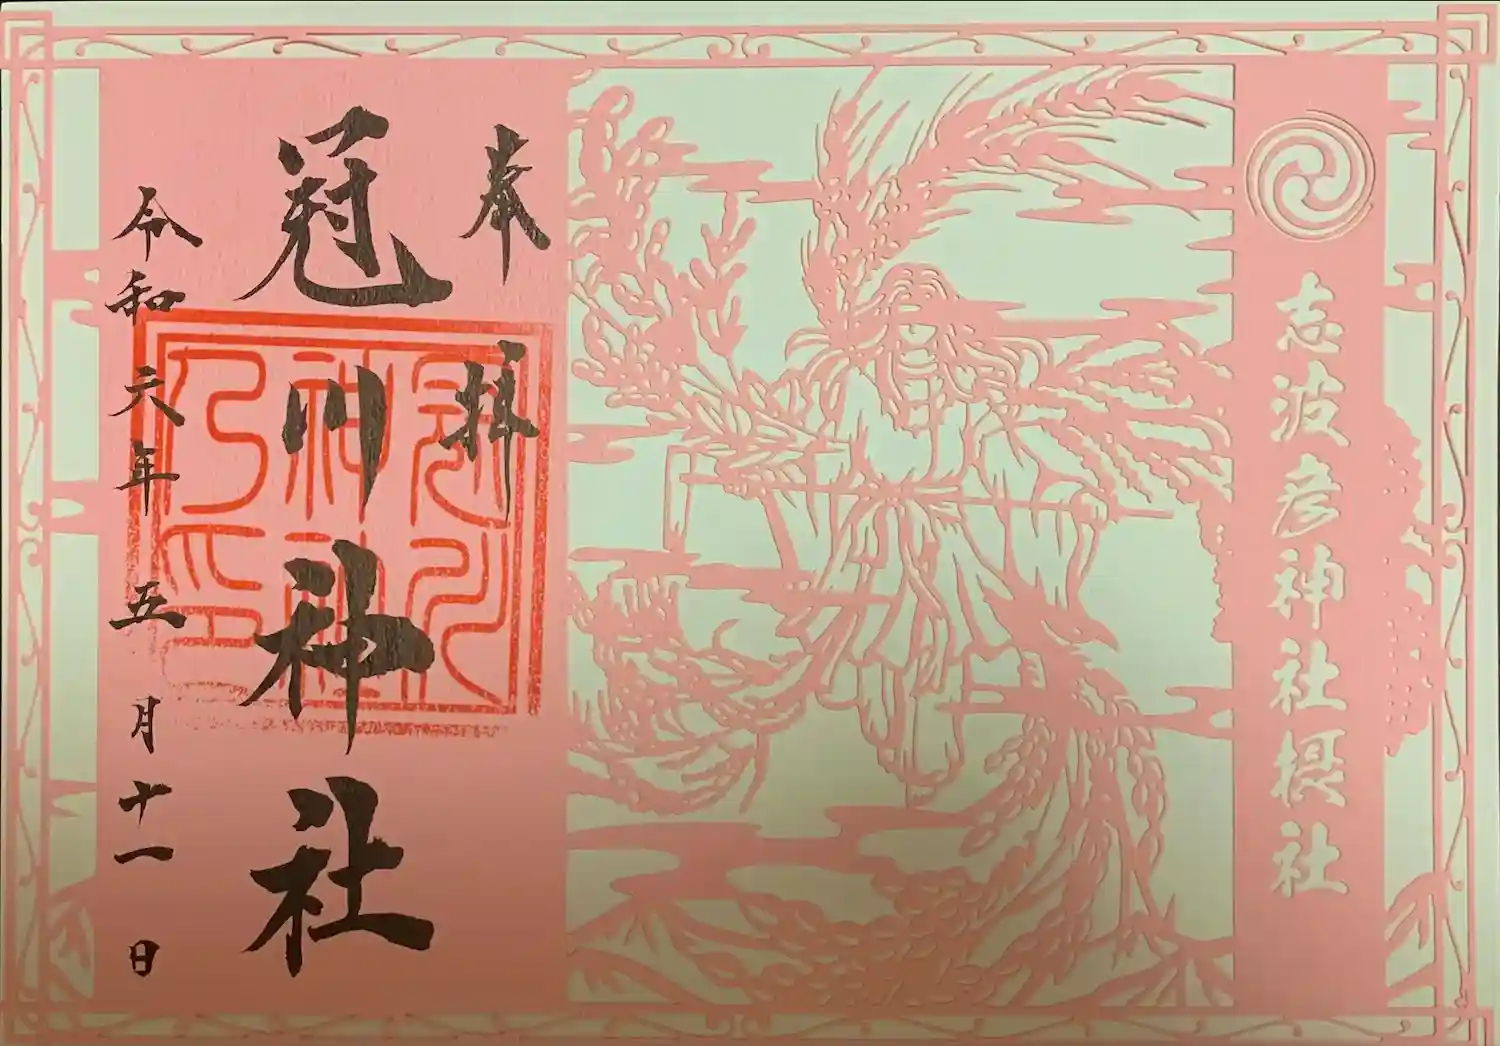 志波彦神社摂社
奉拝
冠川神社
令和六年五月十一日